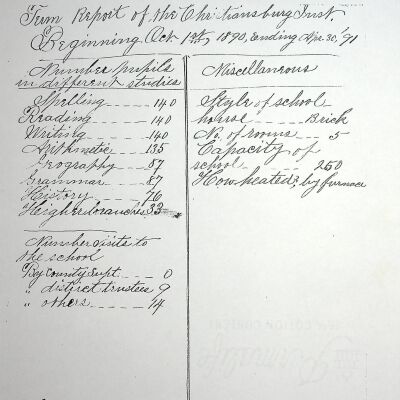 Term Report of the Christiansburg Inst.
Beginning Oct. 13th, 1890, ending Apr. 30, '91
Number pupils
in different studies
Spelling 140
Reading 140
Writing 140
Arithmetic 135
Geography 87
Grammar 87
History 76
Higher branches 33
Number visits to
the school
By County Supt. 0
" district trustees 9
" others 14
Miscellaneous
Style of school
house Brick
No. of rooms 5
Capacity of
school 250
How heated? by furnace